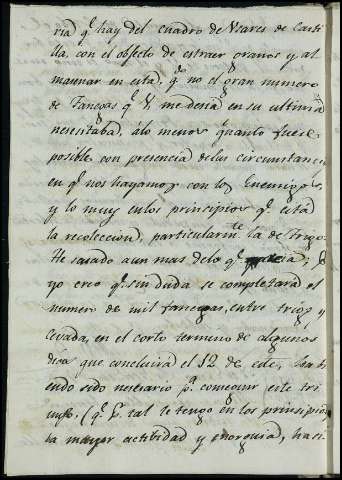 ria q.e hay del cuadro de Vcares de Casti
lla, con el objecto de estraer granos y al
macenar en esta, q.e no el gran numero
de Fanegas q.e V. me decia en su ultima
necesitaba, álo menos quanto fuese
posible con presencia delas circunstancias
en q.e nos hayamos con los Enemigos,
y lo muy enlos principios q.e está
la recoleccion, particularm.te la de trigo.
He sacado aun mas delo q.e
yo creo q.e sin duda se completará el
numero de mil fanegas, entre trigo y
cevada, en el corto termino de algunos
dias que concluirá el 12 de este, ha
endo sido necesario p.a conseguir este tri
unfo. (q.e p.r tal le tengo en los principios
la mayor actividad y